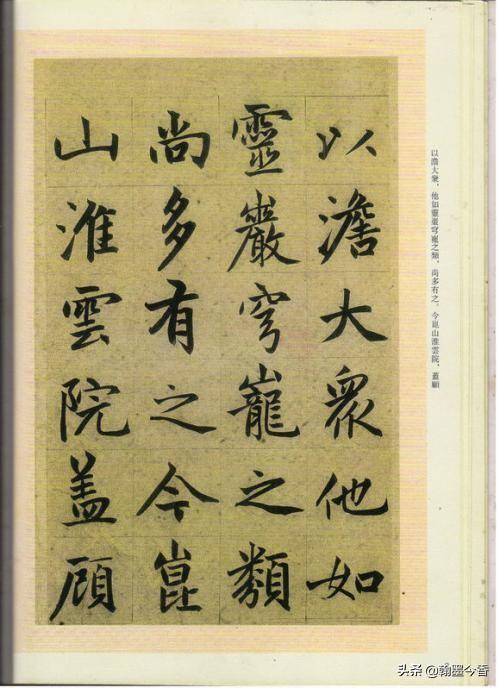 以澹大衆他如
靈巖穹巃之類
尚多有之今崑
山淮雲院盖頋
以澹大衆，他如靈巖穹巃之類，尚多有之。今崑山淮雲院，蓋顧
头条 @翰墨今香